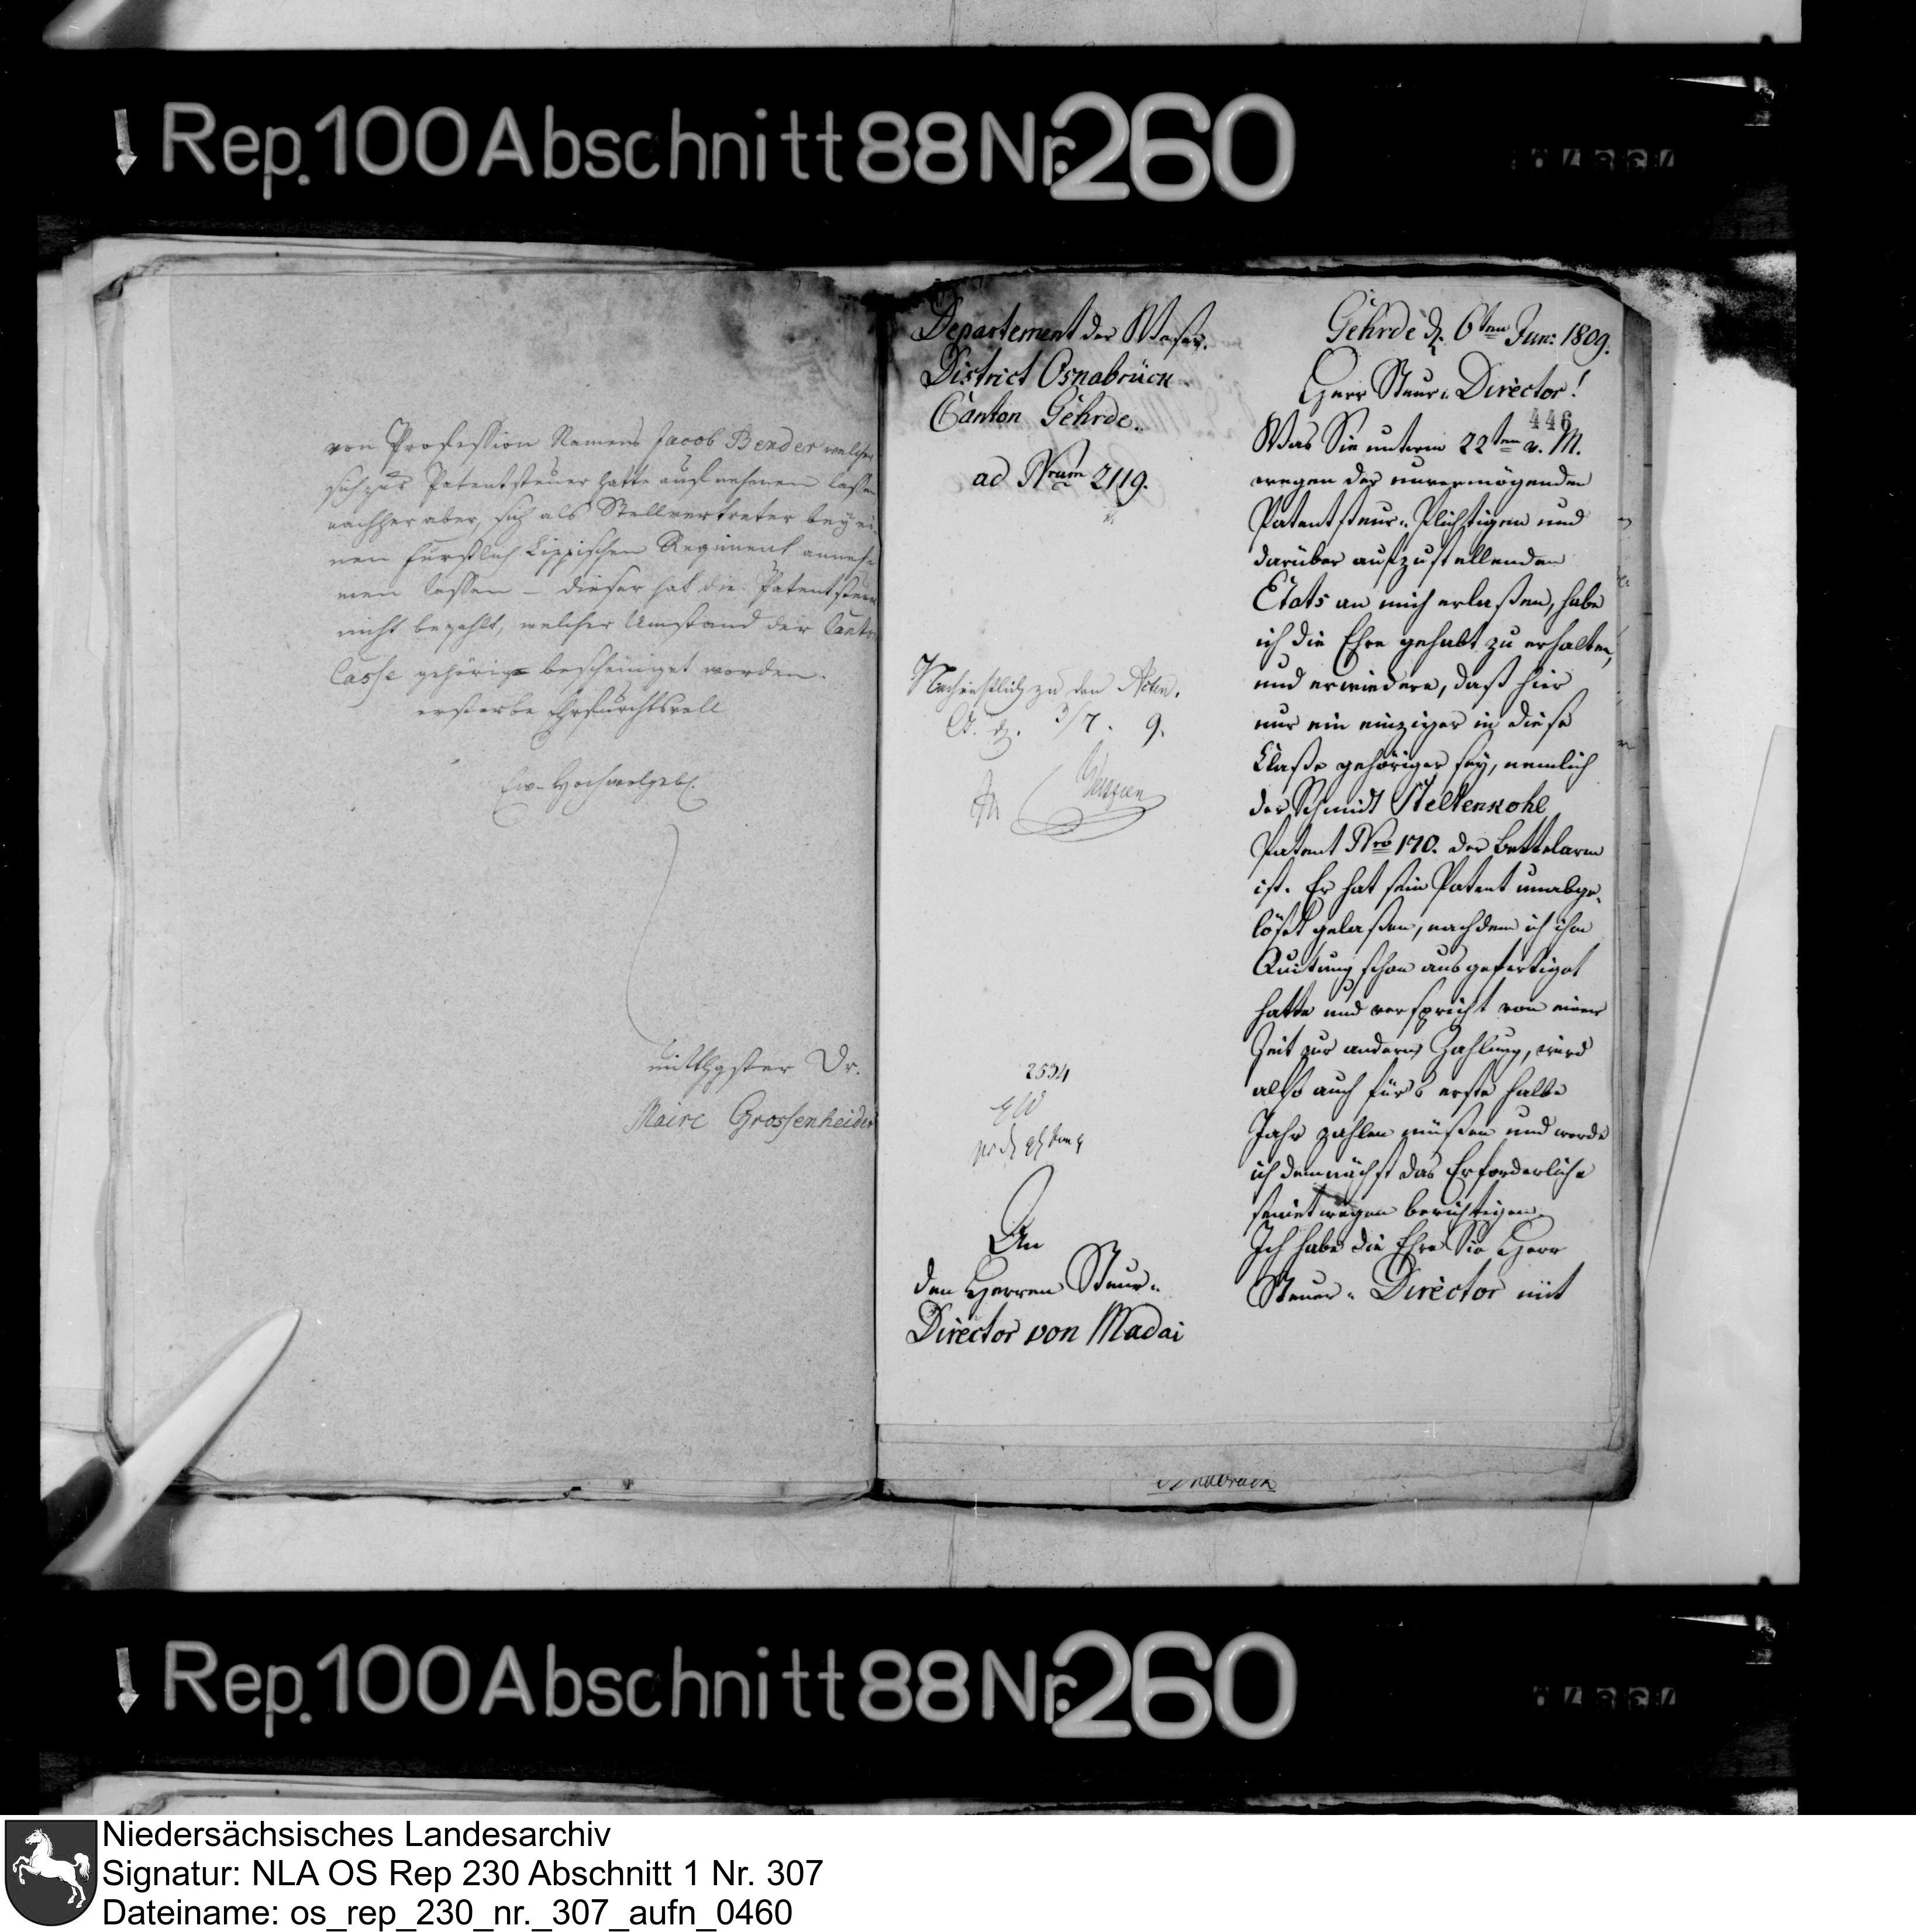 Rep. 100 Abschnitt 88 Nr. 260
von Profession Namens Jacob Bender welcher
sich zur Patentsteuer hatte aufnehmen lassen
nachher aber, sich als Stellvertreter bey ei-
nen Fürstlich Lippischen Regiment anneh-
men lassen – dieser hat die Patentsteuer
nicht bezahlt, welcher Umstand der Canton
Casse gehörig bescheiniget worden.
ersterbe Ehrfurchtsvoll
Ew. Hochwolgeb.
Dr.
Maire Grossenheider
Departement der Weser.
District Osnabrück.
Canton Gehrde.
ad Nrum 2119.
zu den Acten.
O. d. 3/7. 9.
2534
An
den Herren Steur-
Director von Madai
Gehrde d. 6ten Jun: 1809.
Herr Steur- Director!
446
Was Sie unterm 22ten v. M.
wegen der unvermögenden
Patentsteur- Plichtigen und
darüber aufzustellenden
Etats an mich erlaßen, habe
ich die Ehre gehabt zu erhalten,
und erwiedere, daß hier
nur ein einziger in diese
Claße gehöriger sey, nemlich
der Schmidt Steltenkohl
Patent Nro 170. der bettelarm
ist. Er hat sein Patent unabge-
lößt gelaßen, nachdem ich ihm
Quitung schon ausgefertigt
hatte und verspricht von einer
Zeit zur andern Zahlung, wird
also auch für's erste halbe
Jahr zahlen müßen und werde
ich demnächst das Erforderliche
seinetwegen berichtigen.
Ich habe die Ehre Sie Herr
Steuer- Director mit
Osnabrück
Rep. 100 Abschnitt 88 Nr. 260
Niedersächsisches Landesarchiv
Signatur: NLA OS Rep 230 Abschnitt 1 Nr. 307
Dateiname: os_rep_230_nr._307_aufn_0460